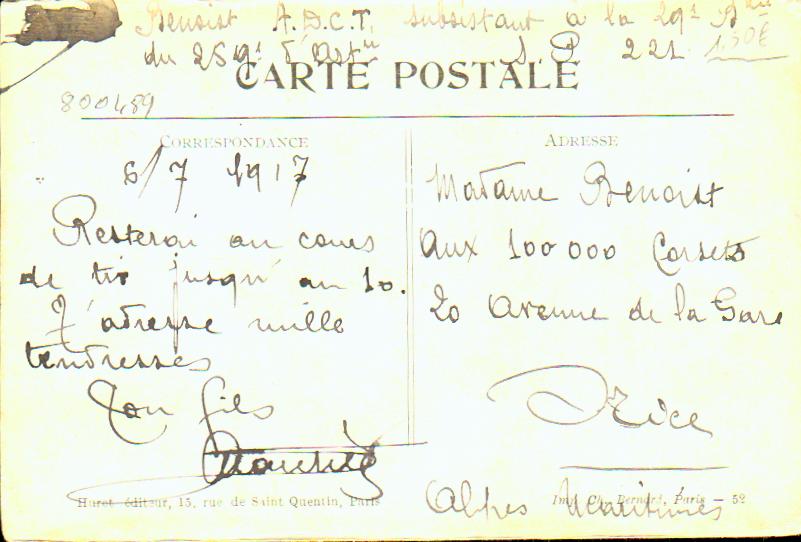 Benoist A.D.C.T. subsistant à la 29e Bie
du 259e d'Artie S.P. 221 1,50€
CARTE POSTALE
800489
CORRESPONDANCE
6/7 1917
Resterai au cours
de tir jusqu'au 10.
T'adresse mille
tendresses
Ton fils
ADRESSE
Madame Benoist
Aux 100 000 Corsets
20 Avenue de la Gare
Nice
Alpes Maritimes
Huret éditeur, 15, rue de Saint Quentin, Paris
Imp. Ch. Bernard, Paris — 52